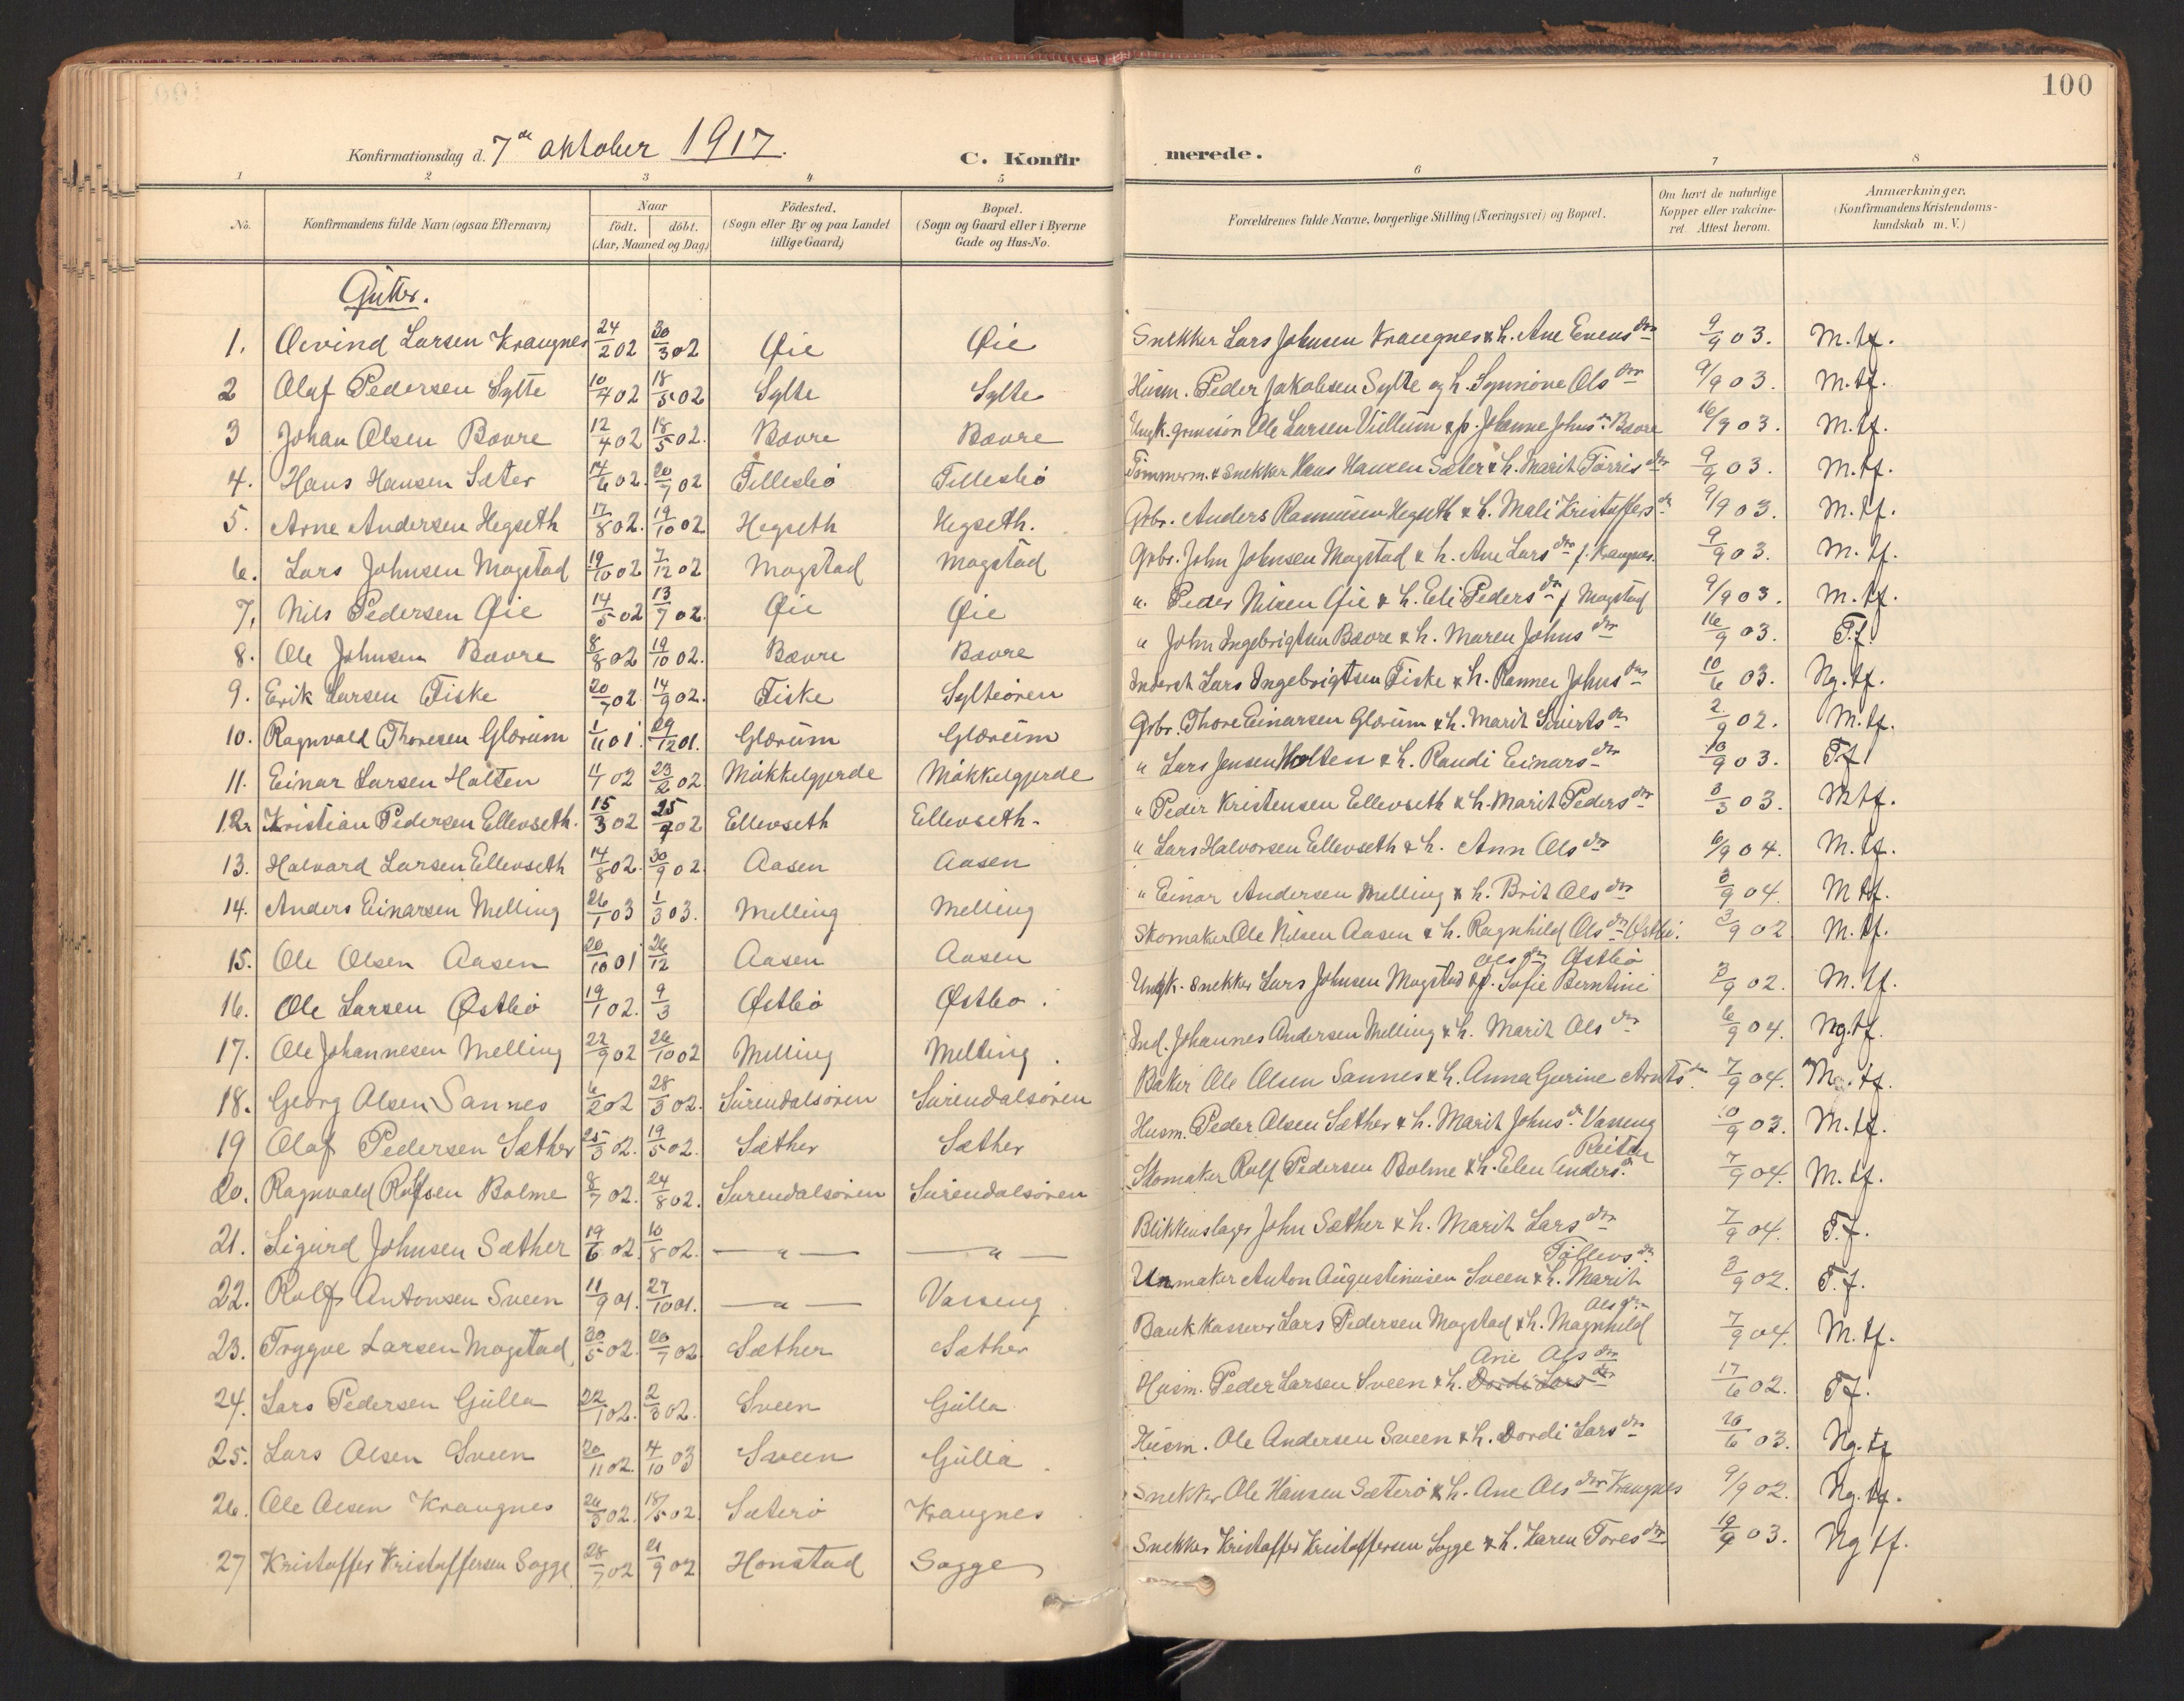 100
Konfirmationsdag d. 7de oktober 1917. C. Konfirmerede.
1 2 3 4 5 6 7 8
No. Konfirmandens fulde Navn (ogsaa Efternavn) Naar födt. döbt. (Aar, Maaned og Dag.) Födested. (Sogn eller By og paa Landet tillige Gaard.) Bopæl. (Sogn og Gaard eller i Byerne Gade og Hus-No. Forældrenes fulde Navne, borgerlige Stilling (Næringsvei) og Bopæl. Om havt de naturlige Kopper eller vakcineret. Attest herom. Anmærkninger. (Konfirmandens Kristendomskundskab m. V.)
Gutter.
1. Øivind Larsen Kraugnes 24/2 02 30/3 02 Øie Øie Snekker Lars Johnsen Kraugnes & h. Ane Evensdtr 9/9 03. M.tf.
2 Olaf Pedersen Sylte 10/4 02 18/5 02 Sylte Sylte Husm. Peder Jakobsen Sylte og h. Synnöve Olsdtr 9/9 03. M.tf.
3 Johan Olsen Bævre 12/4 02 18/5 02. Bævre Bævre Ungk. Ole Larsen Villum & p. Johanne Johnsdr Bævre 16/9 03. M.tf.
4. Hans Hansen Sæter 14/6 02. 20/7 02 Tellesbö Tellesbö Tömmerm. & snekker Hans Hansen Sæter & h. Marit Torrisdtr 9/9 03. M.tf.
5. Arne Andersen Hegseth 17/8 02. 19/10 02 Hegseth Hegseth. Grbr. Anders Rasmusen Hegseth & h. Mali Kristoffersdr 9/9 03. M.tf.
6. Lars Johnsen Mogstad 19/10 02 7/12 02 Mogstad Mogstad Grbr. John Johnsen Mogstad & h. Ane Larsdtr f. Kraugnes. 9/9 03. M.tf.
7. Nils Pedersen Øie 14/5 02 13/7 02. Øie Øie " Peder Nilsen Øie & h. Eli Pedersdtr f Mogstad 9/9 03. M.tf.
8. Ole Johnsen Bævre 8/8 02 19/10 02. Bævre Bævre " John Ingebrigtsen Bævre & h. Maren Johnsdtr 16/9 03. T.f.
9. Erik Larsen Fiske 20/7 02 14/9 02. Fiske Sylteören Inderst Lars Ingebrigtsen Fiske & h. Ranner Johnsdtr 10/6 03. Ng.tf.
10. Ragnvald Thoresen Glærum 1/11 01 29/12 01. Glærum Glærum Grbr. Thore Einarsen Glærum & h. Marit Sivertsdtr 2/9 02. M.tf.
11. Einar Larsen Holten 11/1 02 23/2 02 Mökkelgjerde Mökkelgjerde " Lars Jensen Holten & h. Randi Einarsdtr 10/9 03. T.f
12. Kristian Pedersen Ellevseth. 15/3 02 25/4 02 Ellevseth Ellevseth. " Peder Kristensen Ellevseth & h. Marit Pedersdtr 3/3 03. M.tf.
13. Halvard Larsen Ellevseth 14/8 02. 30/9 02. Aasen Aasen " Lars Halvorsen Ellevseth & h. Ann Olsdtr 6/9 04. M.tf.
14. Anders Einarsen Melling 26/1 03 1/3 03. Melling Melling " Einar Andersen Melling & h. Brit Olsdtr 3/9 04. M tf.
15. Ole Olsen Aasen 20/10 01 26/12 Aasen Aasen Skomaker Ole Nilsen Aasen & h. Ragnhild Olsdtr Østbö. 3/9 02 M.tf.
16. Ole Larsen Østbö 19/1 02. 9/3 Østbö Østbö. Ungk. snekker Lars Johnsen Mogstad & p. Sofie Berntine Olsdtr Østbö 3/9 02. M.tf.
17. Ole Johannesen Melling 22/9 02 26/10 02 Melling Melling. Ind. Johannes Andersen Melling & h. Marit Olsdtr 6/9 04. Ng.tf.
18. Georg Olsen Sannes 6/2 02 28/3 02. Surendalsören Surendalsören Baker Ole Olsen Sannes & h. Anna Gurine Arntsdtr 7/9 04. M.tf.
19 Olaf Pedersen Sæther 25/3 02. 19/5 02. Sæther Sæther Husm. Peder Olsen Sæther & h. Marit Johnsdr. Vasseng 10/9 03. M.tf.
20. Ragnvald Rolfsen Bolme 8/7 02. 24/8 02. Surendalsören Surendalsören Skomaker Rolf Pedersen Bolme & h. Elen Andersdr 7/9 04. M.tf.
21. Sigurd Johnsen Sæther 19/6 02 10/8 02. — " — — " — Blikkenslager John Sæther & h. Marit Larsdtr 7/9 04. T.f.
22. Rolf Antonsen Sveen 11/9 01. 27/10 01. — " — Vasseng Urmaker Anton Augustinusen Sveen & h. Marit Tollevsdtr 3/9 02. T.f.
23. Tryggve Larsen Mogstad 30/5 02. 20/7 02 Sæther Sæther Bankkasserer Lars Pedersen Mogstad & h. Magnhild Olsdr 7/9 04. M.tf.
24. Lars Pedersen Gulla 22/1 02. 2/3 02. Sveen Gulla Husm. Peder Larsen Sveen & h. Dordi Larsdtr Ane Olsdtr 17/6 02. T.f.
25. Lars Olsen Sveen 20/11 02. 4/10 03 Sveen Gulla Husm. Ole Andersen Sveen & h. Dordi Larsdtr 20/6 03. Ng.tf
26. Ole Olsen Kraugnes 26/3 02. 18/5 02. Sæterö Kraugnes Snekker Ole Hansen Sæterö & h. Ane Olsdtr Kraugnes 9/9 02. Ng.tf.
27 Kristoffer Kristoffersen Sogge 28/7 02 21/9 02 Honstad Sogge Snekker Kristoffer Kristoffersen Sogge & h. Karen Toresdtr 19/9 03. Ng tf.